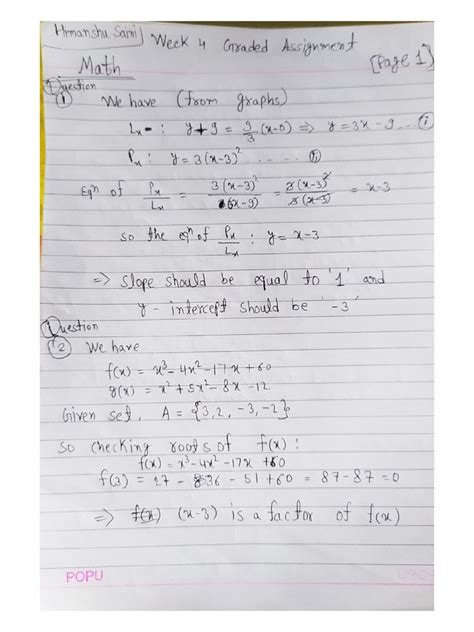 Himanshu Saini Week 4 Graded Assignment
Math [Page 1]
Question
① We have (from graphs)
Lx : y+9 = 9/3 (x-0) ⇒ y = 3x - 9 ... (i)
Px : y = 3(x-3)² ..... (ii)
Eqn of Px/Lx = 3(x-3)²/(3x-9) = 3(x-3)²/3(x-3) = x-3
so the eqn of Px/Lx : y = x-3
⇒ slope should be equal to '1' and
y - intercept should be '-3'
Question
② We have
f(x) = x³ - 4x² - 17x + 60
g(x) = x³ + 5x² - 8x - 12
Given set, A = {3, 2, -3, -2}
So checking roots of f(x) :
f(x) = x³ - 4x² - 17x + 60
f(3) = 27 - 36 - 51 + 60 = 87 - 87 = 0
⇒ (x-3) is a factor of f(x)
POPU